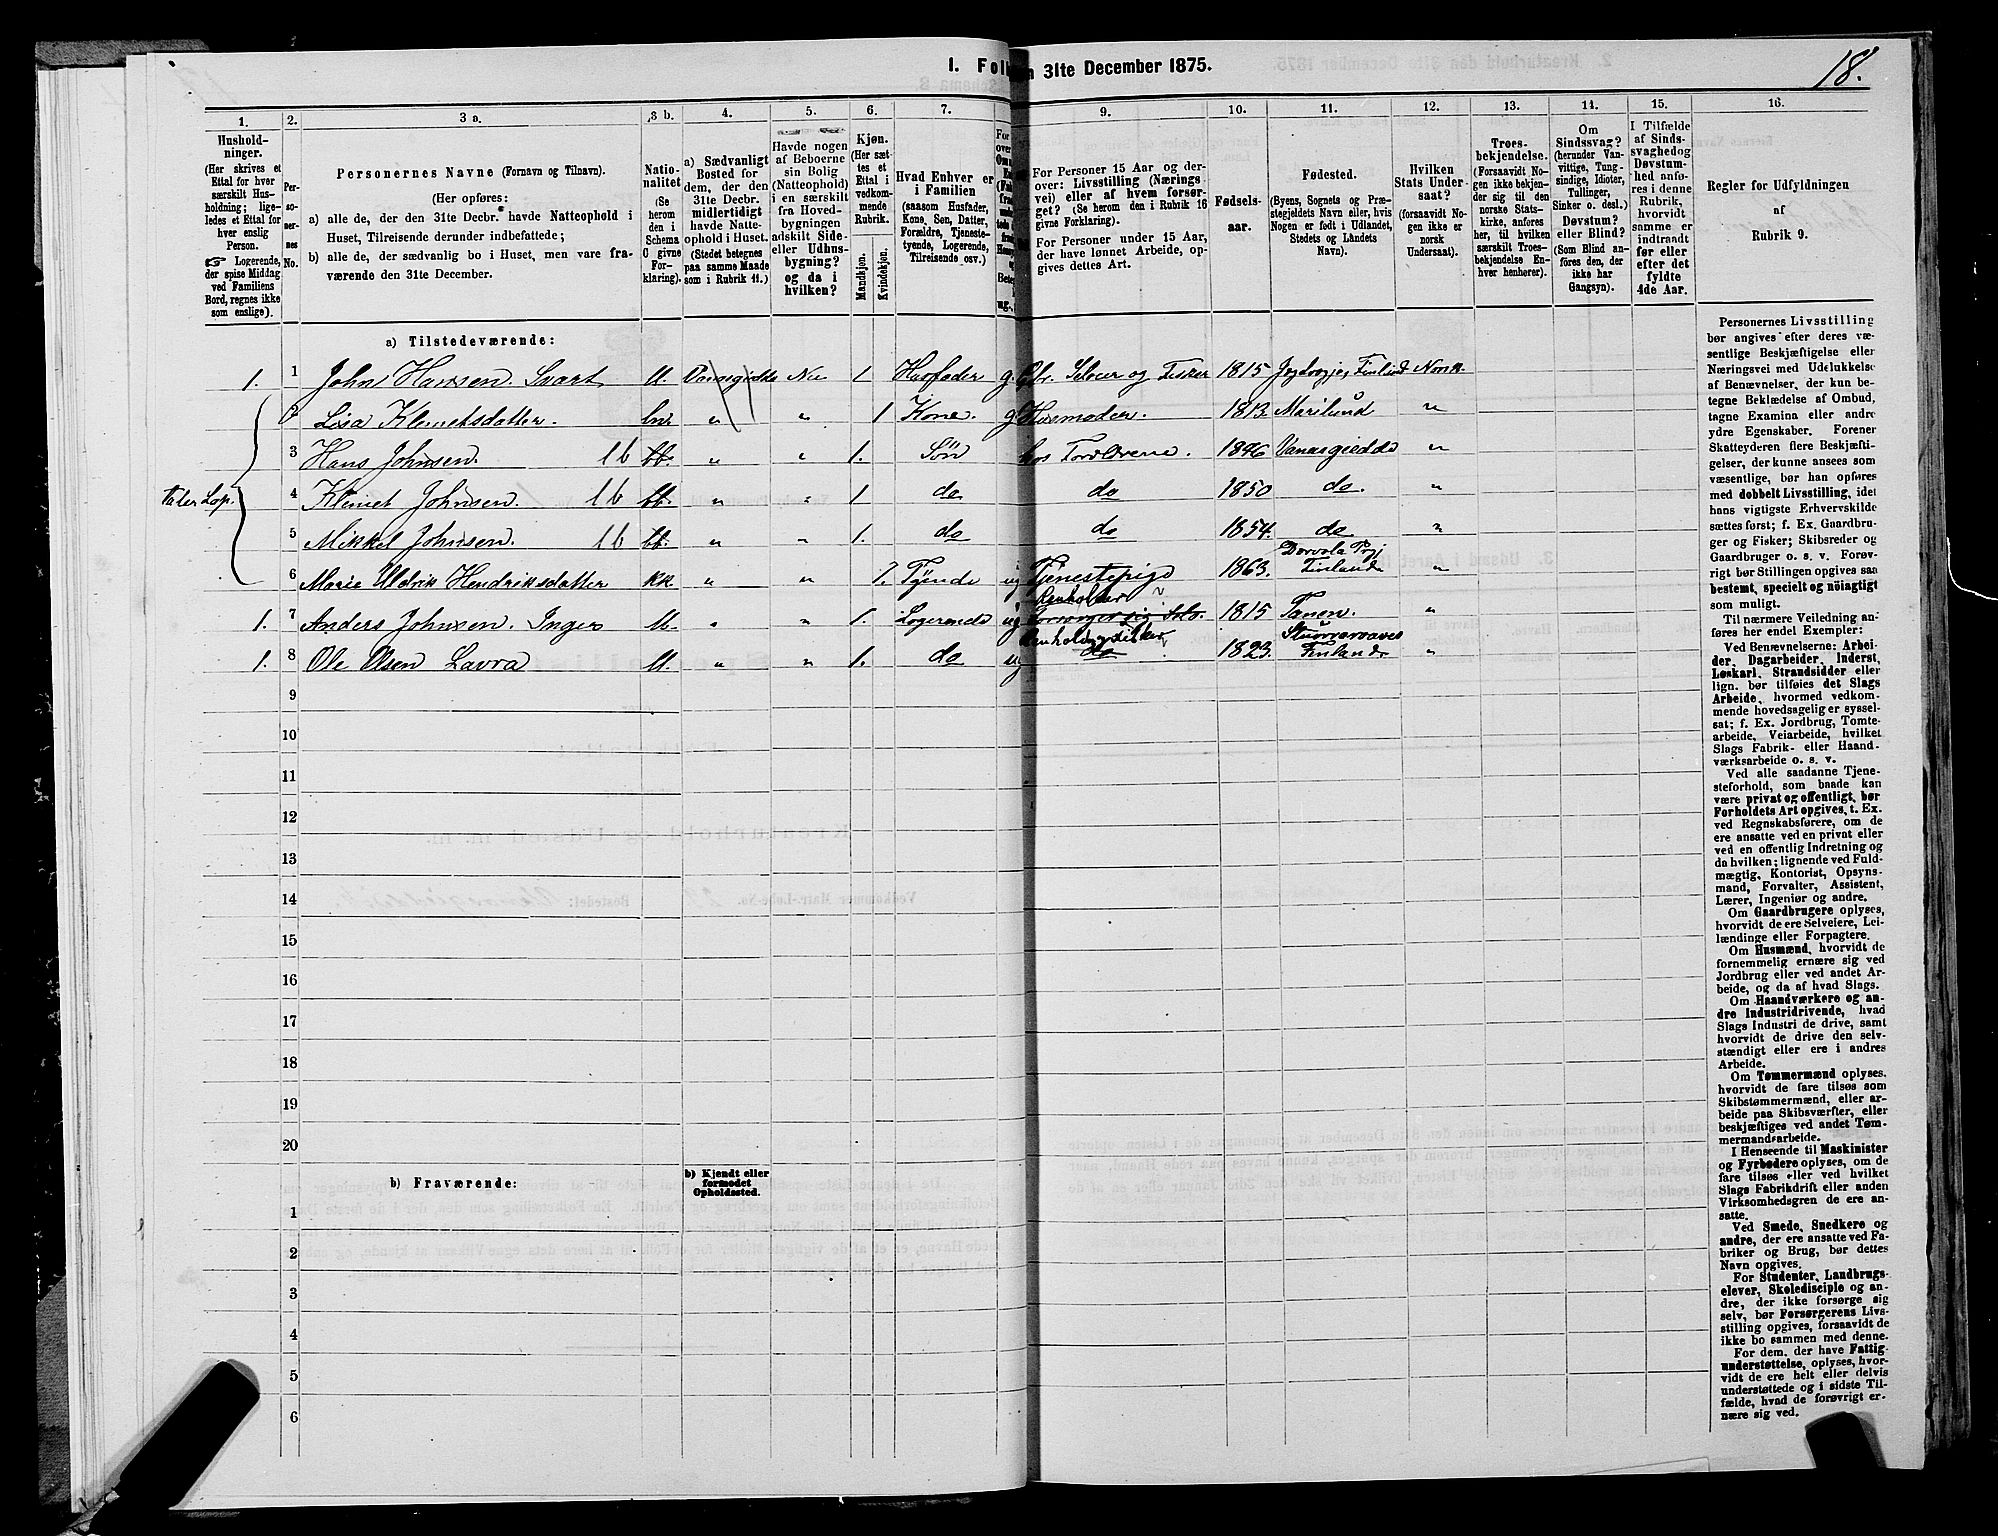 1. Fol
n 31te December 1875.
18.
1.
2.
3 a.
3 b.
4.
5.
6.
7.
9.
10.
11.
12.
13.
14.
15.
16.
Hushold-
ninger.
(Her skrives et
Ettal for hver
særskilt Hus-
holdning; lige-
ledes et Ettal for
hver enslig
Person.
☞ Logerende,
der spise Middag
ved Familiens
Bord, regnes ikke
som enslige).
Per-
so-
ner-
nes
No.
Personernes Navne (Fornavn og Tilnavn).
(Her opføres:
a) alle de, der den 31te Decbr. havde Natteophold i
Huset, Tilreisende derunder indbefattede;
b) alle de, der sædvanlig bo i Huset, men vare fra-
værende den 31te December.
Natio-
nalitet
(Se
herom
den i
Schema
C givne
For-
klaring).
a) Sædvanligt
Bosted for
dem, der den
31te Decbr.
midlertidigt
havde Natte-
ophold i Huset.
(Stedet betegnes
paa samme Maade
som i Rubrik 11.)
Havde nogen
af Beboerne
sin Bolig
(Natteophold)
i en særskilt
fra Hoved-
bygningen
adskilt Side-
eller Udhus-
bygning?
og da i
hvilken?
Kjøn.
(Her sæt-
tes et
Ettal i
vedkom-
mende
Rubrik.
Mandkjøn.
Kvindekjøn.
Hvad Enhver er
i Familien
(saasom Husfader,
Kone, Søn, Datter,
Forældre, Tjeneste-
tyende, Logerende,
Tilreisende osv.)
For Personer 15 Aar og der-
over: Livsstilling (Nærings-
vei) eller af hvem forsør-
get? (Se herom den i Rubrik 16
givne Forklaring).
For Personer under 15 Aar,
der have lønnet Arbeide, op-
gives dettes Art.
Fødsels-
aar.
Fødested.
(Byens, Sognets og Præ-
stegjeldets Navn eller, hvis
Nogen er født i Udlandet,
Stedets og Landets
Navn).
Hvilken
Stats Under-
saat?
(forsaavidt No-
gen ikke er
norsk
Undersaat).
Troes-
bekjendelse.
(Forsaavidt No-
gen ikke bekjen-
der sig til den
norske Stats-
kirke, anføres
her, til hvilken
særskilt Troes-
bekjendelse En-
hver henhører).
Om
Sindssvag?
(herunder Van-
vittige, Tung-
sindige, Idioter,
Tullinger,
Sinker o. desl.)
Døvstum?
eller Blind?
(Som Blind an-
føres den, der
ikke har
Gangsyn).
I Tilfælde
af Sinds-
svaghed og
Døvstum-
hed anføres
i denne
Rubrik,
hvorvidt
samme er
indtraadt
før eller
efter det
fyldte
4de Aar.
Regler for Udfyldningen
af
Rubrik 9.
a) Tilstedeværende:
1. 1 John Hansen. Svart ll. Vanasgiedde Nei 1 Husfader g. Gbr. Selveier og Fisker 1815 Finland Norsk.
2 Lisa Klemetsdatter. " " 1 Kone. g Husmoder. 1813. Marilund "
3 Hans Johnsen. 1 b bb. " " 1. Søn hos Forældrene. 1846 Vanasgiedde "
taler Lap.
4 Klemet Johnsen. 1 b bb. " " 1 do do 1850 do. "
5 Mikkel Johnsen. 1 b bb. " " 1. do do 1854. do "
6 Marie Uldrik Hendriksdatter kk " " 1. Tyende ug Tjenestepige 1863. Finland "
1. 7 Anders Johnsen. Inger ll. " " 1. Logerende ug forsørger sig selv. 1815 Tanen. "
1. 8 Ole Olsen Lavra ll. " " 1. do ug do 1823. Finland "
9
10
11
12
13
14
15
16
17
18
19
20
b) Fraværende:
b) Kjendt eller
formodet
Opholdssted.
1
2
3
4
5
6
Personernes Livsstilling
bør angives efter deres væ-
sentlige Beskjæftigelse eller
Næringsvei med Udelukkelse
af Benævnelser, der kun be-
tegne Beklædelse af Ombud,
tagne Examina eller andre
ydre Egenskaber. Forener
Skatteyderen flere Beskjæfti-
gelser, der kunne ansees som
væsentlige, bør han opføres
med dobbelt Livsstilling, idet
hans vigtigste Erhvervskilde
sættes først; f. Ex. Gaardbru-
ger og Fisker; Skibsreder og
Gaardbruger o. s. v. Forøv-
rigt bør Stillingen opgives saa
bestemt, specielt og nøiagtigt
som muligt.
Til nærmere Veiledning an-
føres her endel Exempler:
Ved Benævnelserne: Arbei-
der, Dagarbeider, Inderst,
Løskarl, Strandsidder eller
lign. bør tilføies det Slags
Arbeide, hvormed vedkom-
mende hovedsagelig er syssel-
sat; f. Ex. Jordbrug, Tomte-
arbeide, Veiarbeide, hvilket
Slags Fabrik- eller Haand-
værksarbeide o. s. v.
Ved alle saadanne Tjene-
steforhold, som baade kan
være privat og offentligt, bør
Forholdets Art opgives, t. Ex.
ved Regnskabsførere, om de
ere ansatte ved en privat eller
ved en offentlig Indretning og
da hvilken; lignende ved Fuld-
mægtig, Kontorist, Opsyns-
mand, Forvalter, Assistent,
Lærer, Ingeniør og andre.
Om Gaardbrugere oplyses,
hvorvidt de ere Selveiere, Lei-
lændinge eller Forpagtere.
Om Husmænd, hvorvidt de
fornemmelig ernære sig ved
Jordbrug eller ved andet Ar-
beide, og da af hvad Slags.
Om Haandværkere og an-
dre Industridrivende, hvad
Slags Industri de drive, samt
hvorvidt de drive den selv-
stændigt eller ere i andres
Arbeide.
Om Tømmermænd oplyses,
hvorvidt de fare tilsøs som
Skibstømmermænd, eller ar-
beide paa Skibsværfter, eller
beskjæftiges ved andet Tøm-
mermandsarbeide.
I Henseende til Maskinister
og Fyrbødere oplyses, om de
fare tilsøs eller ved hvilket
Slags Fabrikdrift eller anden
Virksomhedsgren de ere an-
satte.
Ved Smede, Snedkere og
andre, der ere ansatte ved Fa-
briker og Brug, bør dettes
Navn opgives.
For Studenter, Landbrugs-
elever, Skoledisciple og an-
dre, der ikke forsørge sig
selv, bør Forsørgerens Livs-
stilling opgives, forsaavidt de
ikke bo sammen med denne.
For dem, der have Fattig-
understøttelse, oplyses, hvor-
vidt de ere helt eller delvis
understøttede og i sidste Til-
fælde, hvad de forøvrigt er-
nære sig ved.